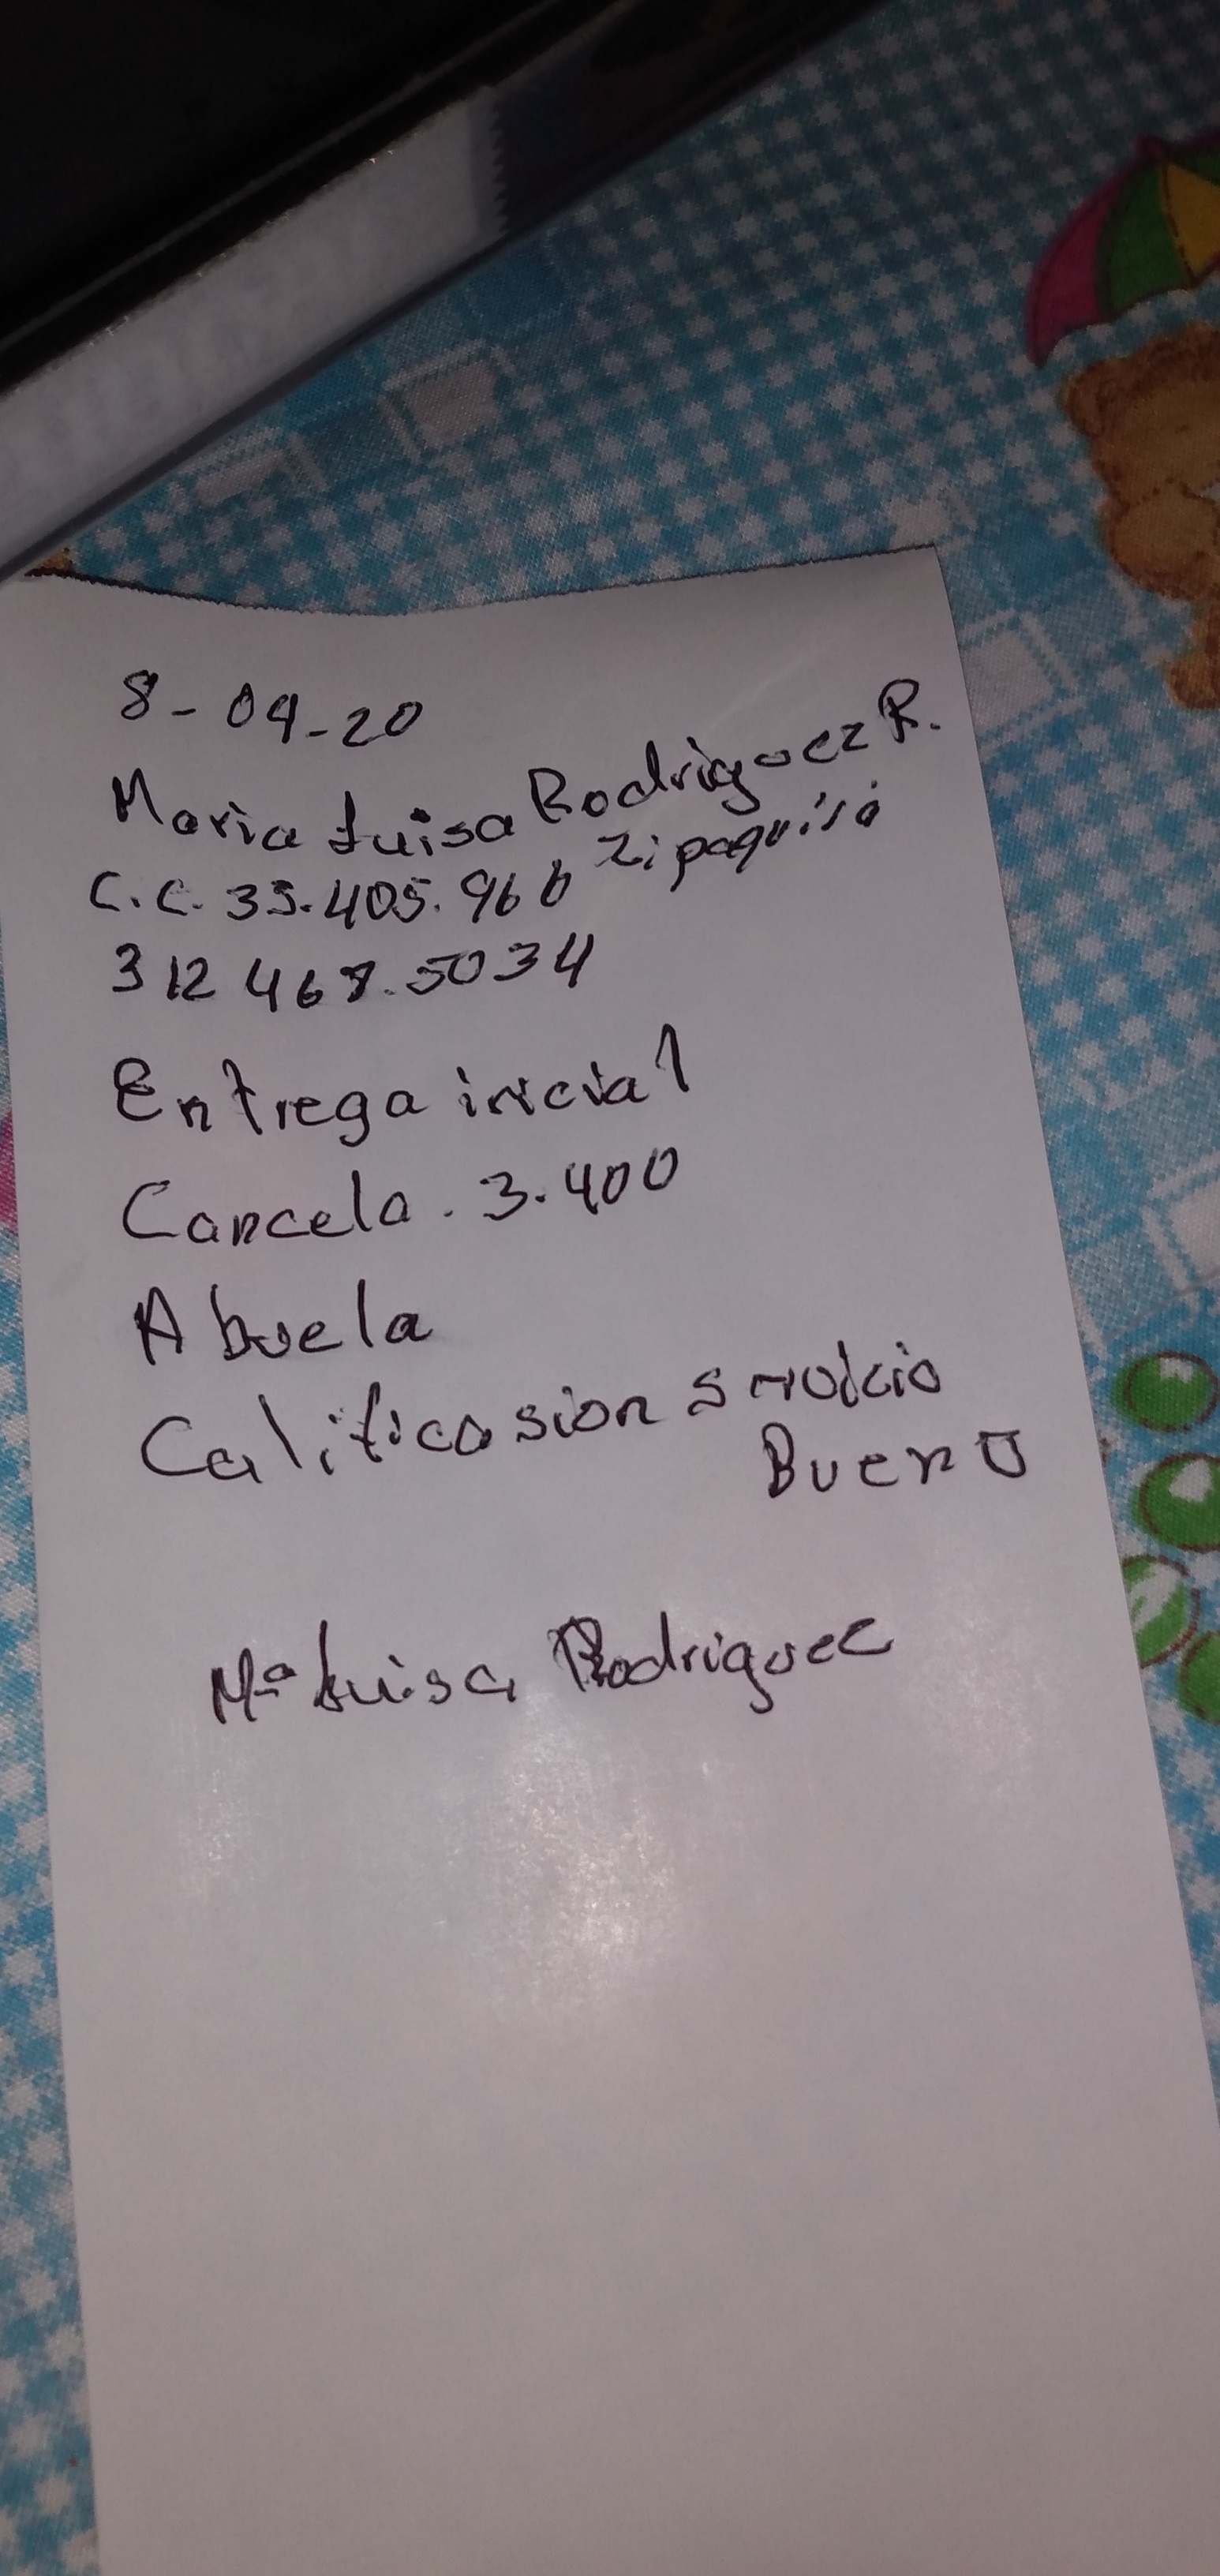 8-04-20
Maria Luisa Rodriguez R.
C.C. 35.405.966 Zipaquirá
312 468.5034
Entrega inicial
Cancela. 3.400
Abuela
Calificasion
Bueno
Mª Luisa Rodriguez